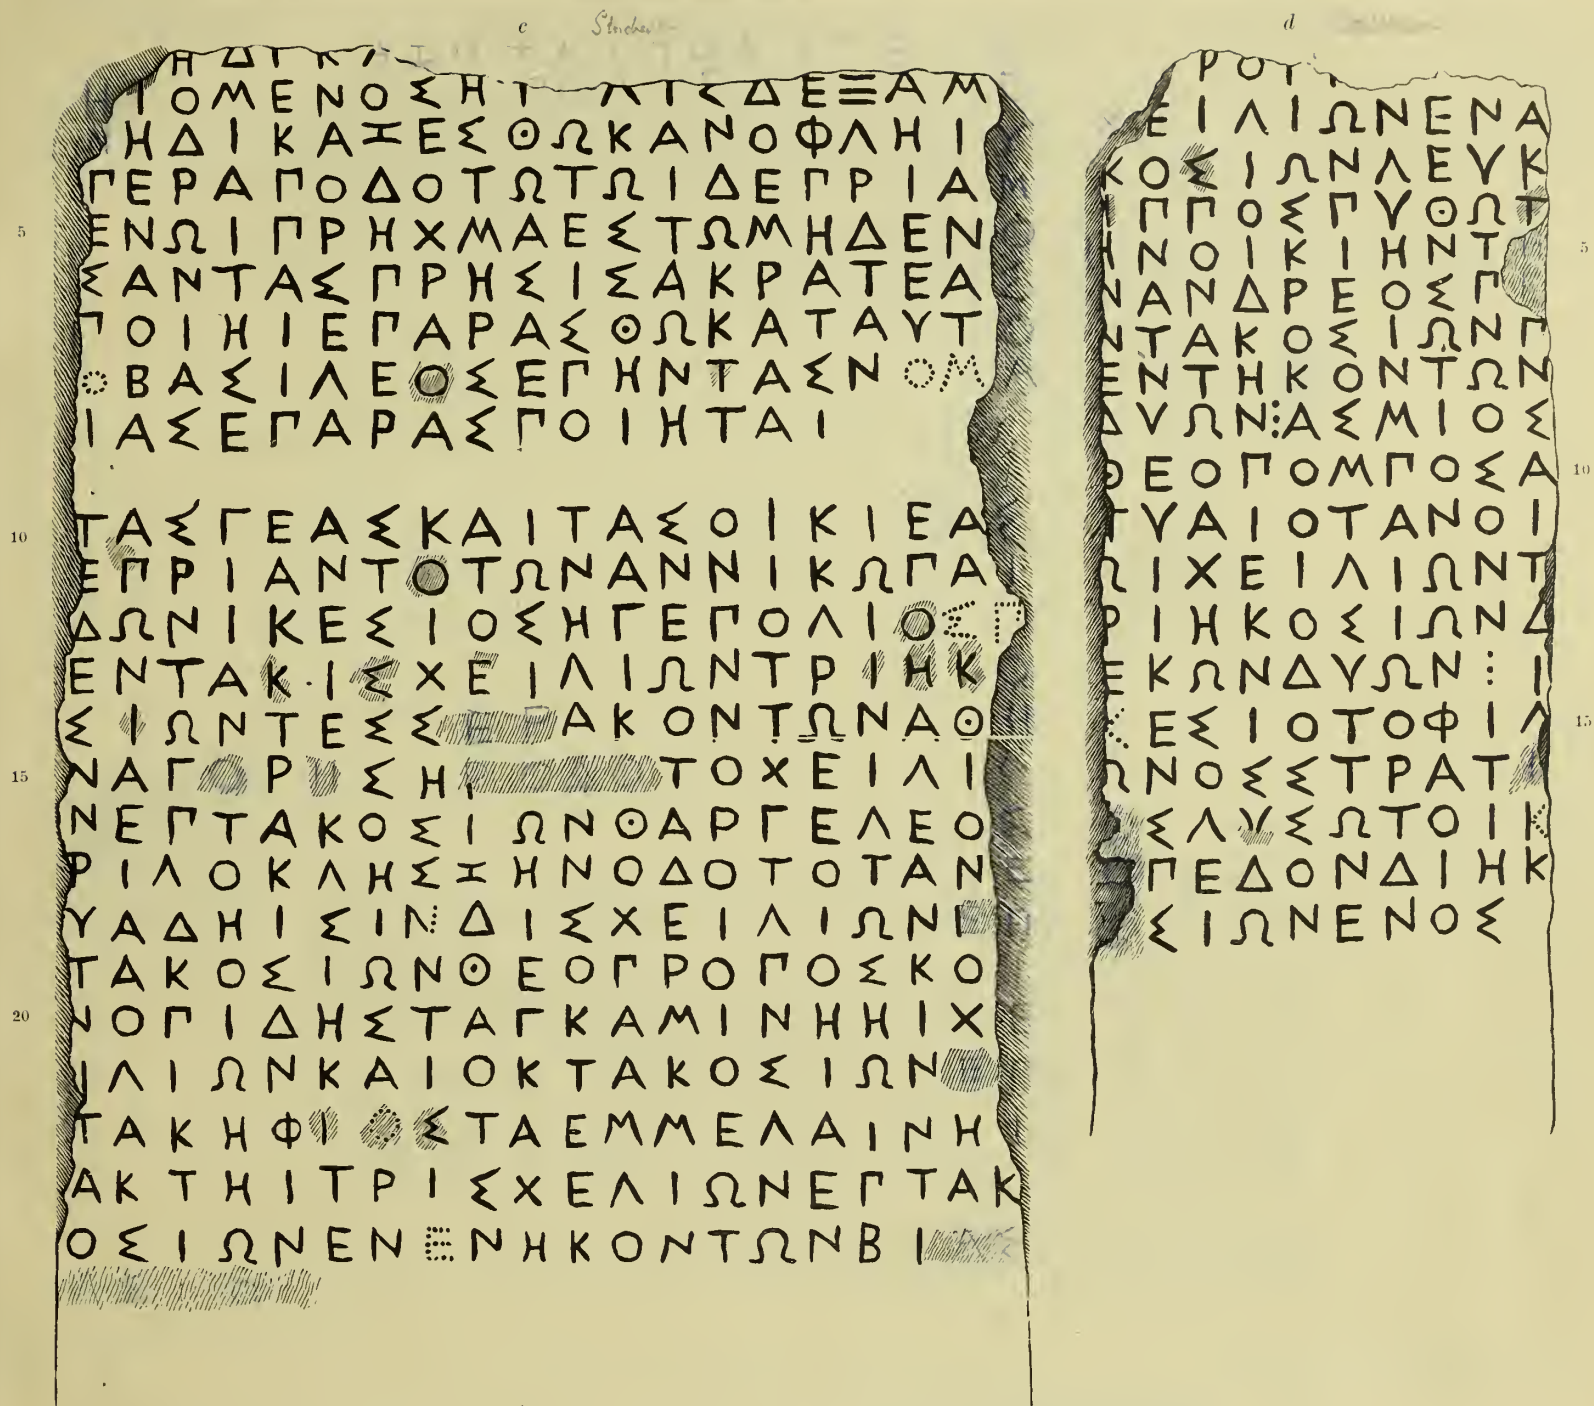 c
ΗΔΙΚΑ
ΤΟΜΕΝΟΣΗΤ ΛΙΣΔΕΞΑΜ
ΗΔΙΚΑΖΕΣΘΩΚΑΝΟΦΛΗΙ
ΓΕΡΑΠΟΔΟΤΩΤΩΙΔΕΠΡΙΑ
5 ΕΝΩΙΠΡΗΧΜΑΕΣΤΩΜΗΔΕΝ
ΣΑΝΤΑΣΠΡΗΣΙΣΑΚΡΑΤΕΑ
ΠΟΙΗΙΕΠΑΡΑΣΘΩΚΑΤΑΥΤ
ΟΒΑΣΙΛΕΟΣΕΠΗΝΤΑΣΝΟΜ
ΙΑΣΕΠΑΡΑΣΠΟΙΗΤΑΙ
10 ΤΑΣΓΕΑΣΚΑΙΤΑΣΟΙΚΙΕΑ
ΕΠΡΙΑΝΤΟΤΩΝΑΝΝΙΚΩΠΑ
ΔΩΝΙΚΕΣΙΟΣΗΓΕΠΟΛΙΟΣΠ
ΕΝΤΑΚΙΣΧΕΙΛΙΩΝΤΡΙΗΚ
ΣΙΩΝΤΕΣΣ ΑΚΟΝΤΩΝΑΘ
15 ΝΑΓΟΡ ΣΗ ΤΟΧΕΙΛΙ
ΝΕΠΤΑΚΟΣΙΩΝΘΑΡΓΕΛΕΟ
ΡΙΛΟΚΛΗΣΖΗΝΟΔΟΤΟΤΑΝ
ΥΑΔΗΙΣΙΝ⋮ΔΙΣΧΕΙΛΙΩΝ
ΤΑΚΟΣΙΩΝΘΕΟΠΡΟΠΟΣΚΟ
20 ΝΟΠΙΔΗΣΤΑΓΚΑΜΙΝΗΗΙΧ
ΙΛΙΩΝΚΑΙΟΚΤΑΚΟΣΙΩΝ
ΤΑΚΗΦΙΟΣΤΑΕΜΜΕΛΑΙΝΗ
ΑΚΤΗΙΤΡΙΣΧΕΛΙΩΝΕΠΤΑΚ
ΟΣΙΩΝΕΝΕΝΗΚΟΝΤΩΝΒΙ
d
ΡΟΥ
ΕΙΛΙΩΝΕΝΑ
ΚΟΣΙΩΝΛΕΥΚ
ΙΠΠΟΣΠΥΘΩΤ
5 ΗΝΟΙΚΙΗΝΤ
ΝΑΝΔΡΕΟΣΠ
ΝΤΑΚΟΣΙΩΝΠ
ΕΝΤΗΚΟΝΤΩΝ
ΔΥΩΝ⋮ΑΣΜΙΟΣ
10 ΘΕΟΠΟΜΠΟΣΑ
ΓΥΑΙΟΤΑΝΟΙ
ΩΙΧΕΙΛΙΩΝΤ
ΡΙΗΚΟΣΙΩΝΔ
ΕΚΩΝΔΥΩΝ⋮Ι
15 ΚΕΣΙΟΤΟΦΙΛ
ΩΝΟΣΣΤΡΑΤ
ΣΛΥΣΩΤΟΙΚ
ΠΕΔΟΝΔΙΗΚ
ΣΙΩΝΕΝΟΣ